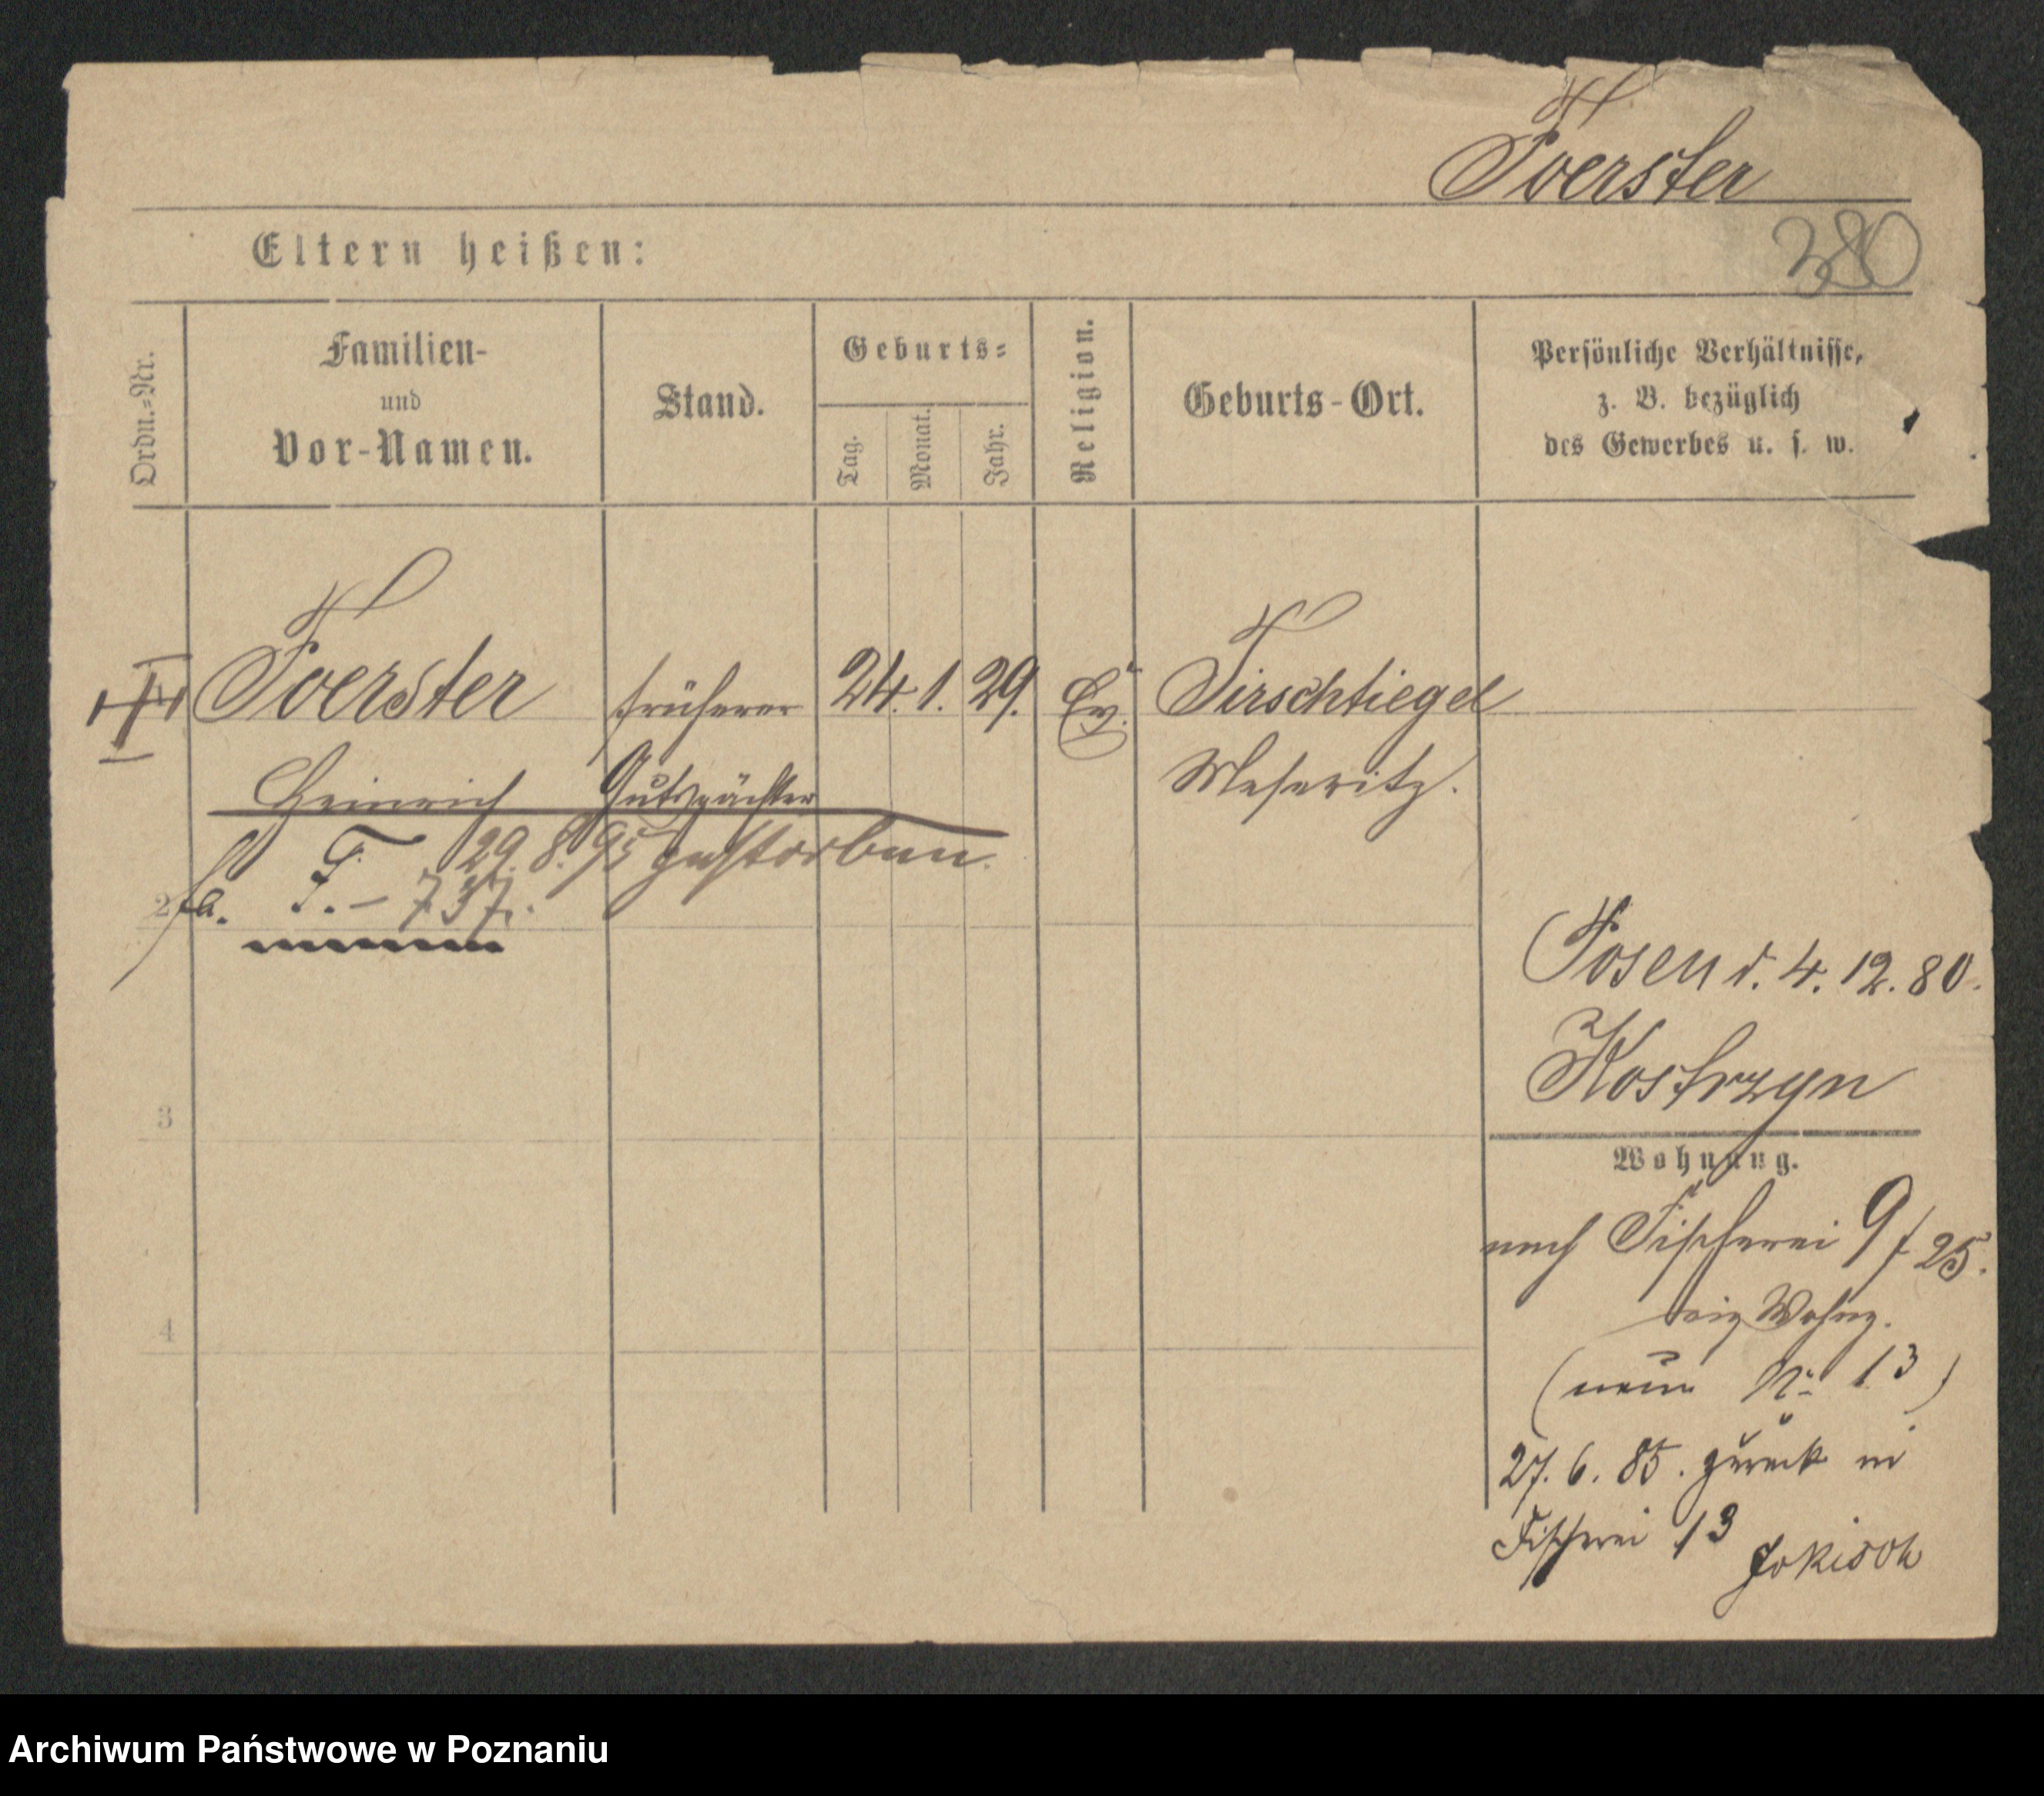 Foerster
380
Eltern heißen:
Ordn.-Nr.
Familien-
und
Vor-Namen.
Stand.
Geburts-
Tag.
Monat.
Jahr.
Religion.
Geburts-Ort.
Persönliche Verhältnisse,
z. B. bezüglich
des Gewerbes u. s. w.
Foerster früherer 24. 1. 29. Ev. Tirschtiegel
Heinrich Gutspächter Meseritz.
29. 8. 95 gestorben.
2 F. - 737.
3
4
Posen d. 4. 12. 80.
Kostrzyn
Wohnung.
nach Fischerei 9/25.
eig Wohng.
(neue No 13)
27. 6. 85. zurück in
Fischerei 13
Jokisch
Archiwum Państwowe w Poznaniu